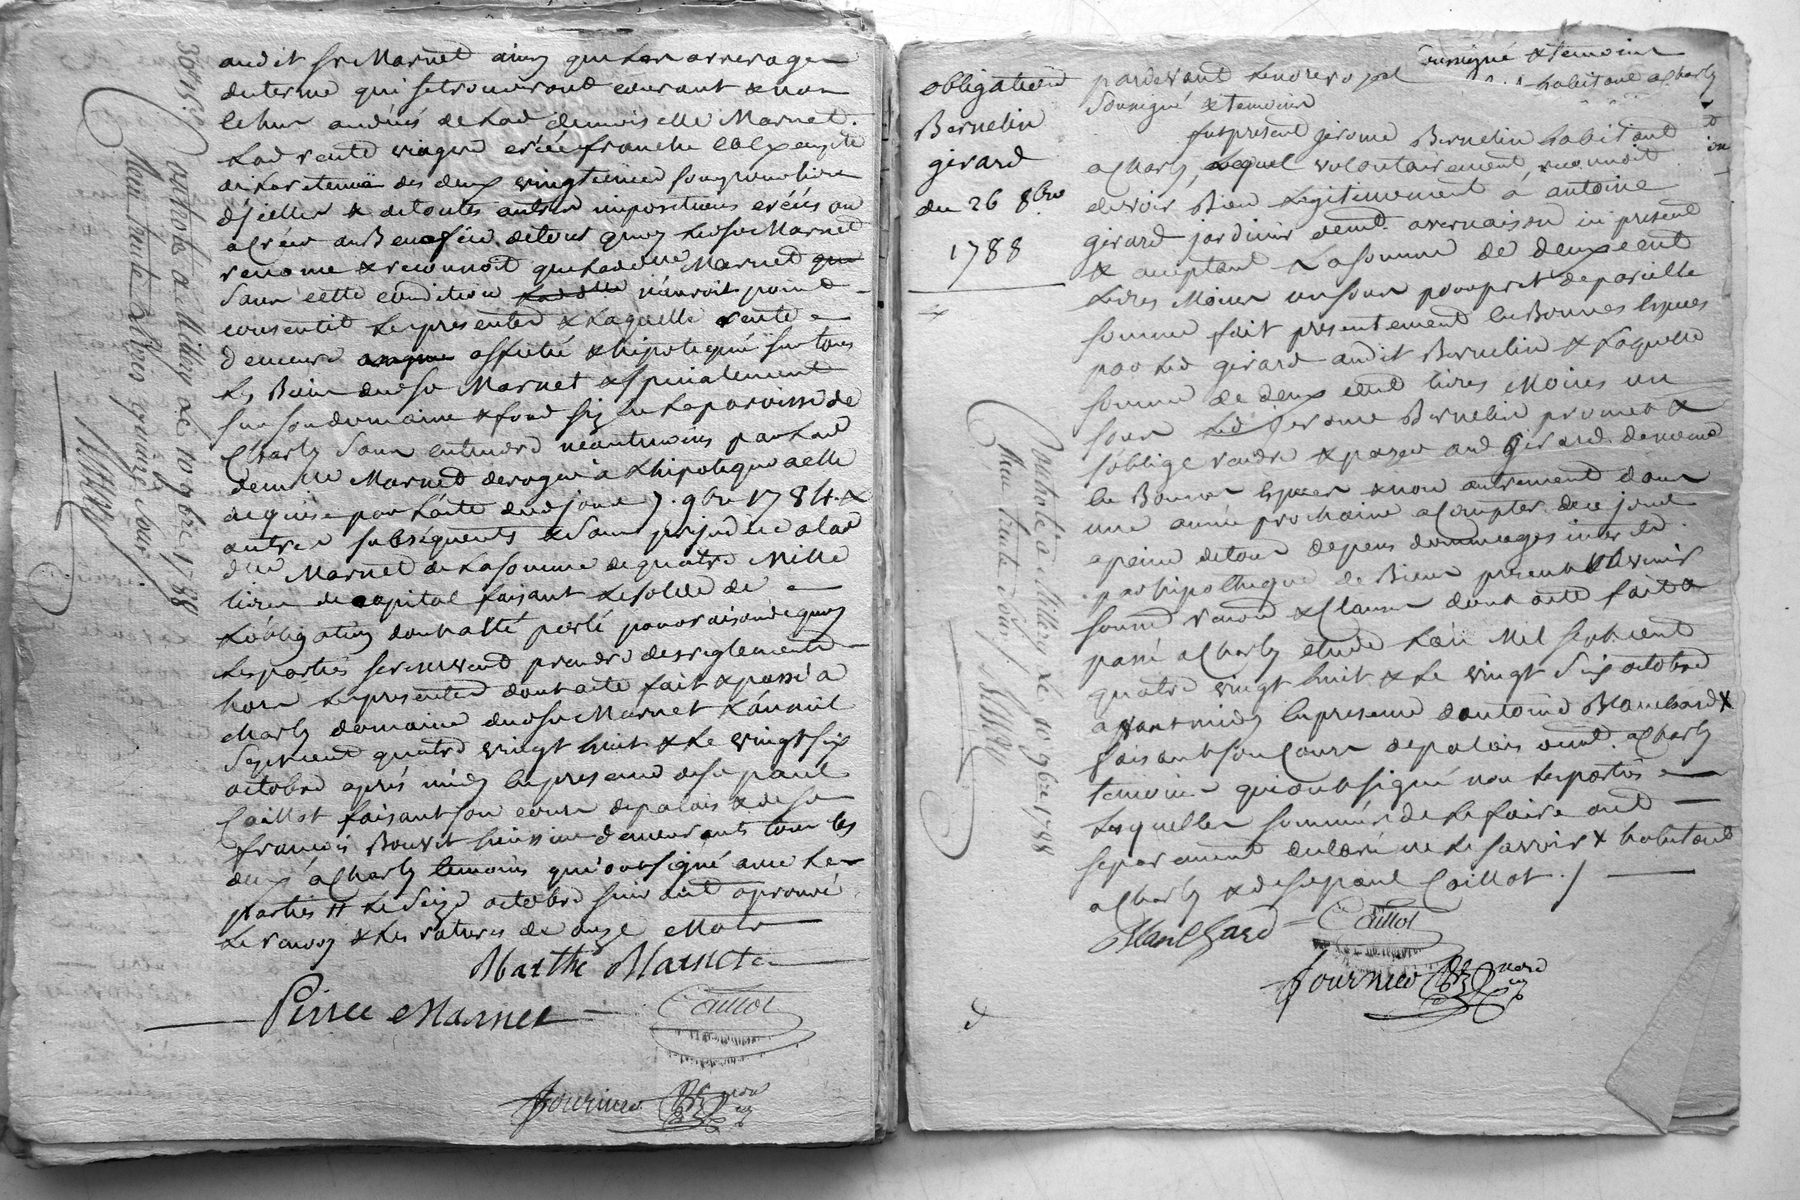 audit sr Marnet ainsy que les arrerages
du terme qui se trouveront courant & non
echus au décés de lad. demoiselle Marnet.
lad rente viagere créée franche et exempte
de la retenuë des deux vingtiemes sous pour livre
d'jcelles & de toutes autres impositions créés ou
a créer au Benefice de tous quoy led sr Marnet
renonce & reconnoit que lad dlle Marnet
sans cette condition n'auroit point
consentit les presentes & laquelle rente
demeure affectée & hipotequée sur tous
les Biens dud sr Marnet & specialement
sur son domaine & fond sis en la paroisse de
Charly sans entendre neantmoins par lad
demlle Marnet deroger a l'hipoteque a elle
acquise par l'acte dud jour 7. 9bre 1784. &
autres subséquents & sans prejudice a lad
dlle Marnet de la somme de quatre Mille
livres de capital faisant le solde de
l'obligation dont a été parlé pour raison de quoy
les parties se reservent prendre des reglements
hors les presentes dont acte fait & passé a
Charly domaine dud sr Marnet l'an mil
sept cent quatre vingt huit & le vingt six
octobre aprés midy en presence de sr paul
Caillot faisant son cours de palais & de sr
françois Bouvit huissier demeurants tous les
deux a Charly temoins qui ont signé avec les
parties // le seize octobre suivant aprouvé
le renvoy & les ratures de onze Mots
Marthe Marnet
Pierre Marnet
Caillot
fournier nore
30tt 15s
Controlé a Millery le 10 9bre 1738
Reçu trente livres quinze sous
obligation
Bernelin
gérard
du 26 8bre
1788
pardevant le nore royal soussigné & temoins
soussigné & temoins habitant a Charly
fut present jérome Bernelin habitant
a Charly, lequel volontairement, reconnoit
devoir Bien & legitimement a antoine
gérard jardinier demt. a vernaison ici present
& acceptant la somme de deux cent
livres Moins un sous pour pret de pareille
somme fait presentement en Bonnes especes
par led gérard audit Bernelin & laquelle
somme de deux cent livres Moins un
sous led jerome Bernelin promet &
s'oblige rendre & payer aud gérard. de meme
en Bonnes especes & non autrement dans
une année prochaine a compter de ce jour
a peine de tous depens dommages interets
par hipotheque de Biens presents & a venir
soumis. renon & Clauses dont acte fait &
passé a Charly étude l'an Mil sept cent
quatre vingt huit & le vingt six octobre
avant midy en presence d'antoine Blanchard &
faisant son cours de palais demt. a Charly
temoins qui ont signé non les parties
lesquelles sommées de le faire ont
separement declaré ne le savoir & habitant
a Charly & de sr paul Caillot. /
Blanchard Caillot
fournier nore
Controlé a Millery le 10 9bre 1788
Reçu trente sous